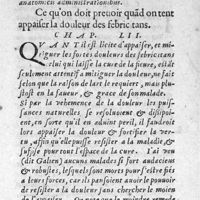 anatomicis administrationibus.
Ce qu'on doit preuoir quãd on tent
appaiser la douleur des febricitans.
CHAP. LII.
QVANT il est licite d'appaiser, et mi-
tiguer les fortes douleurs des febricitans
celui qui laisse la cure de la fieure, est tãt
seulement attentif a mitiguer la douleur, ne fait
selon que la raison de l'art le requiert, mais plus-
tost en la faueur, & grace de son malade.
Si par la vehemence de la douleur les puis-
sances naturelles se resoudent, & dissipent
en sorte qu'il en aduint peril, il faudroit
lors appaiser la douleur & fortifier la ver-
tu, affin qu'elle puisse resister a la maladie, &
suffise pour tout l'espace de la cure. J'ai veu
(dit Galien) aucuns malades si fort audacieus
& robustes, lesquels sont mors pour s'estre fiez
a leurs forces, car ils pensoient assez forts pour
resister a la douleur sans chercher le moien
de l'appaiser.